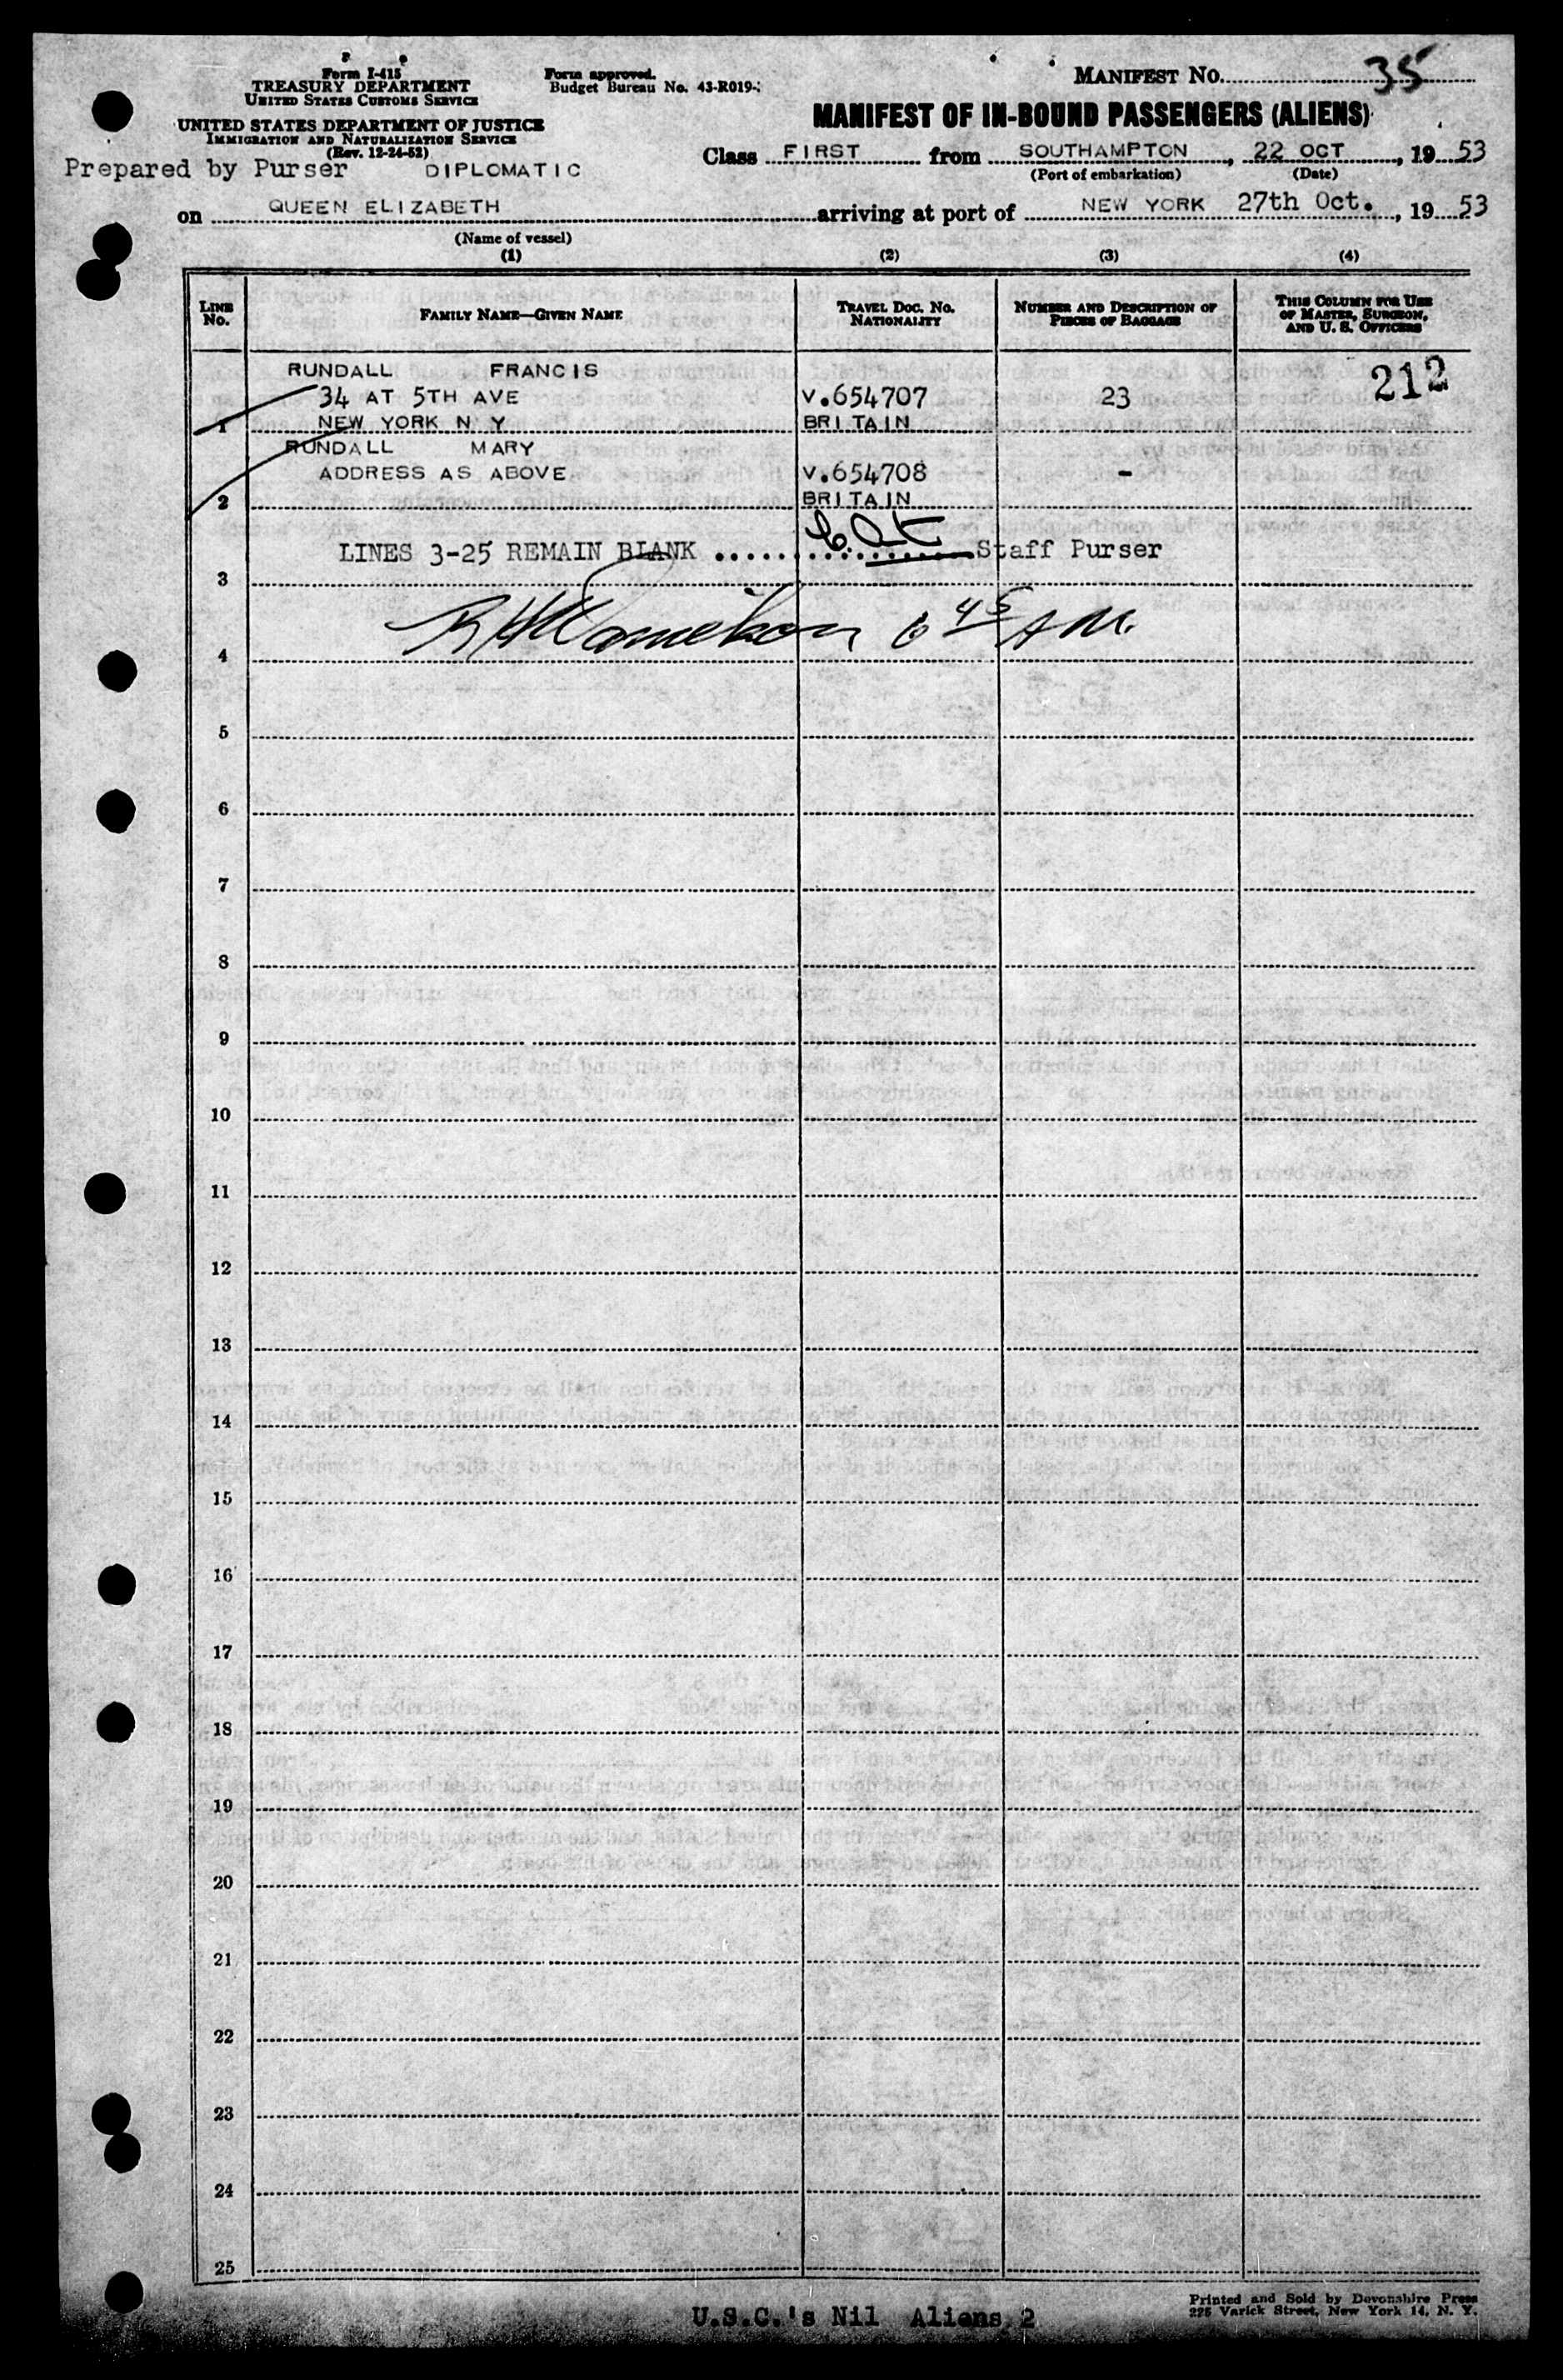 Form I-415
TREASURY DEPARTMENT
UNITED STATES CUSTOMS SERVICE
UNITED STATES DEPARTMENT OF JUSTICE
IMMIGRATION AND NATURALIZATION SERVICE
(Rev. 12-24-52)
Prepared by Purser DIPLOMATIC
Form approved.
Budget Bureau No. 43-R019-
MANIFEST NO. 35
MANIFEST OF IN-BOUND PASSENGERS (ALIENS)
Class FIRST from SOUTHAMPTON, 22 OCT, 19 53
(Port of embarkation) (Date)
on QUEEN ELIZABETH arriving at port of NEW YORK 27th Oct., 19 53
(Name of vessel)
(1) (2) (3) (4)
LINE No. FAMILY NAME—GIVEN NAME TRAVEL DOC. NO. NATIONALITY NUMBER AND DESCRIPTION OF PIECES OF BAGGAGE THIS COLUMN FOR USE OF MASTER, SURGEON, AND U. S. OFFICERS
RUNDALL FRANCIS 212
34 AT 5TH AVE V.654707 23
1 NEW YORK N Y BRITAIN
RUNDALL MARY
ADDRESS AS ABOVE V.654708 -
2 BRITAIN
LINES 3-25 REMAIN BLANK Staff Purser
3
6 45 AM.
4
5
6
7
8
9
10
11
12
13
14
15
16
17
18
19
20
21
22
23
24
25
U.S.C.'s Nil Aliens 2
Printed and Sold by Devonshire Press
225 Varick Street, New York 14, N. Y.